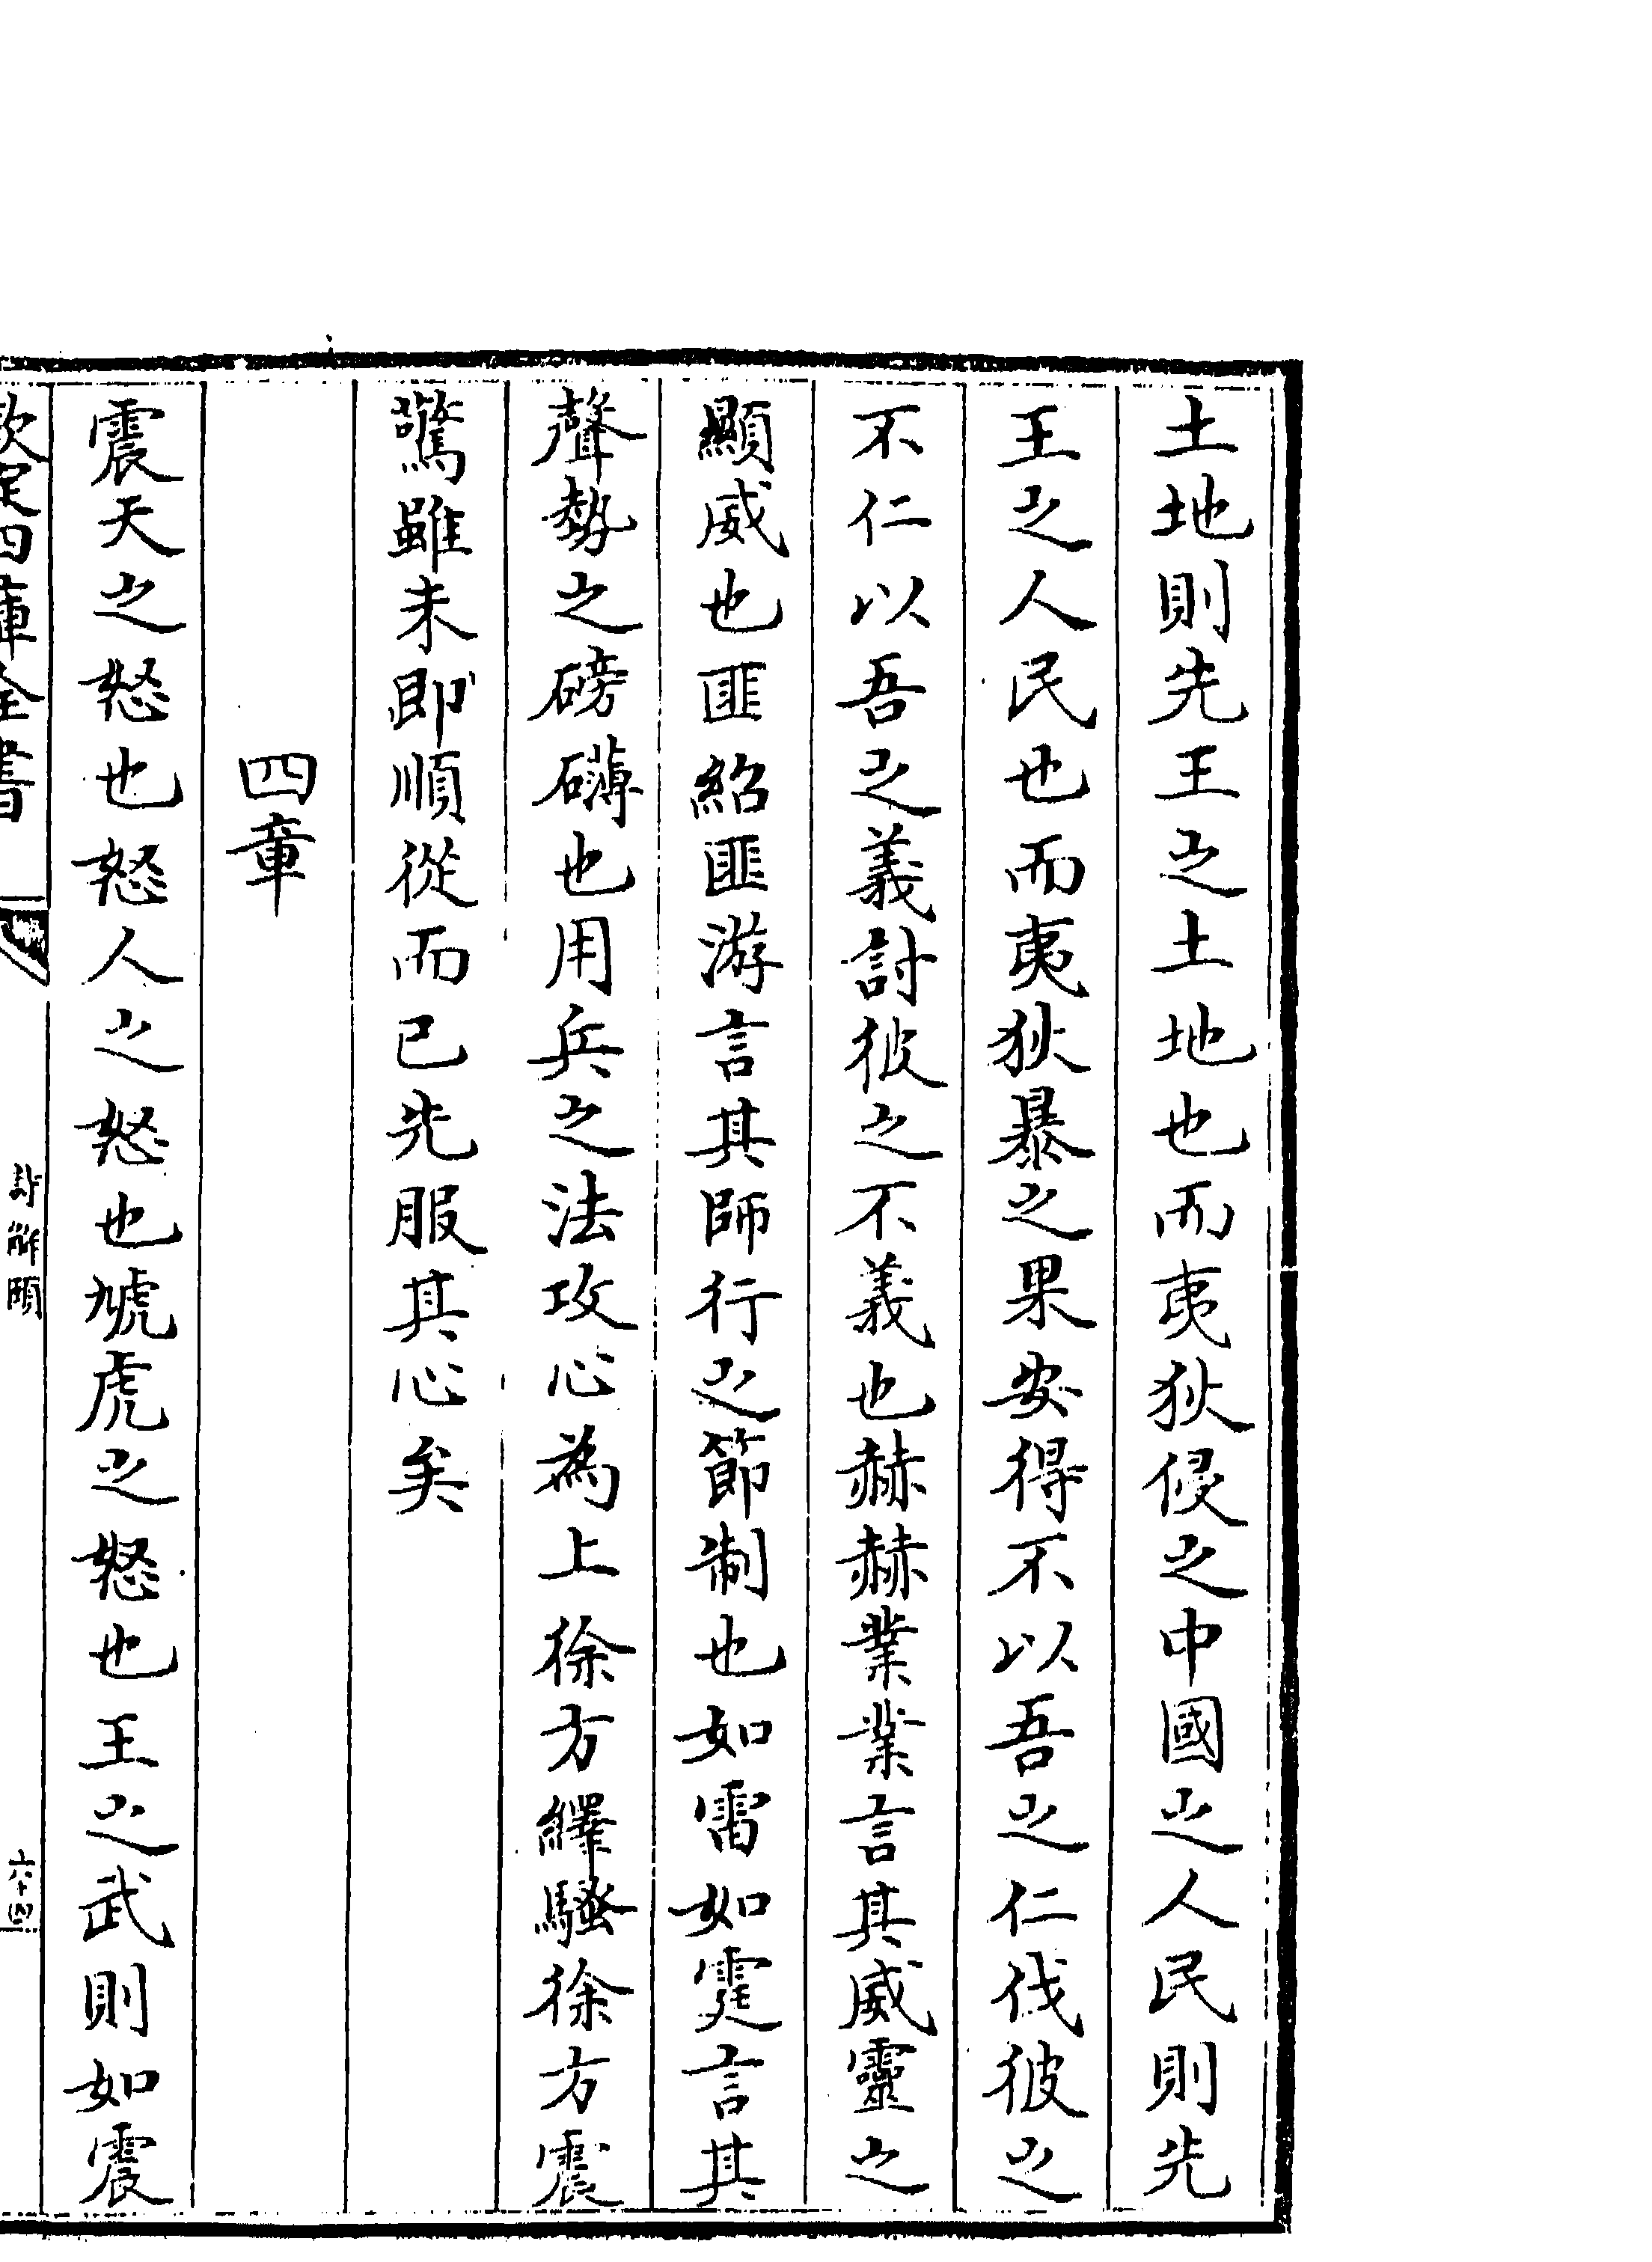 土地則先王之土地也而夷狄侵之中國之人民則先
王之人民也而夷狄暴之果安得不以吾之仁伐彼之
不仁以吾之義討彼之不義也赫赫業業言其威靈之
顯威也匪紹匪游言其師行之節制也如雷如霆言其
聲勢之磅礴也用兵之法攻心為上徐方繹騷徐方震
驚雖未即順從而已先服其心矣
四章
震天之怒也怒人之怒也虓虎之怒也王之武則如震
欽定四庫全書
詩解頤
六十四